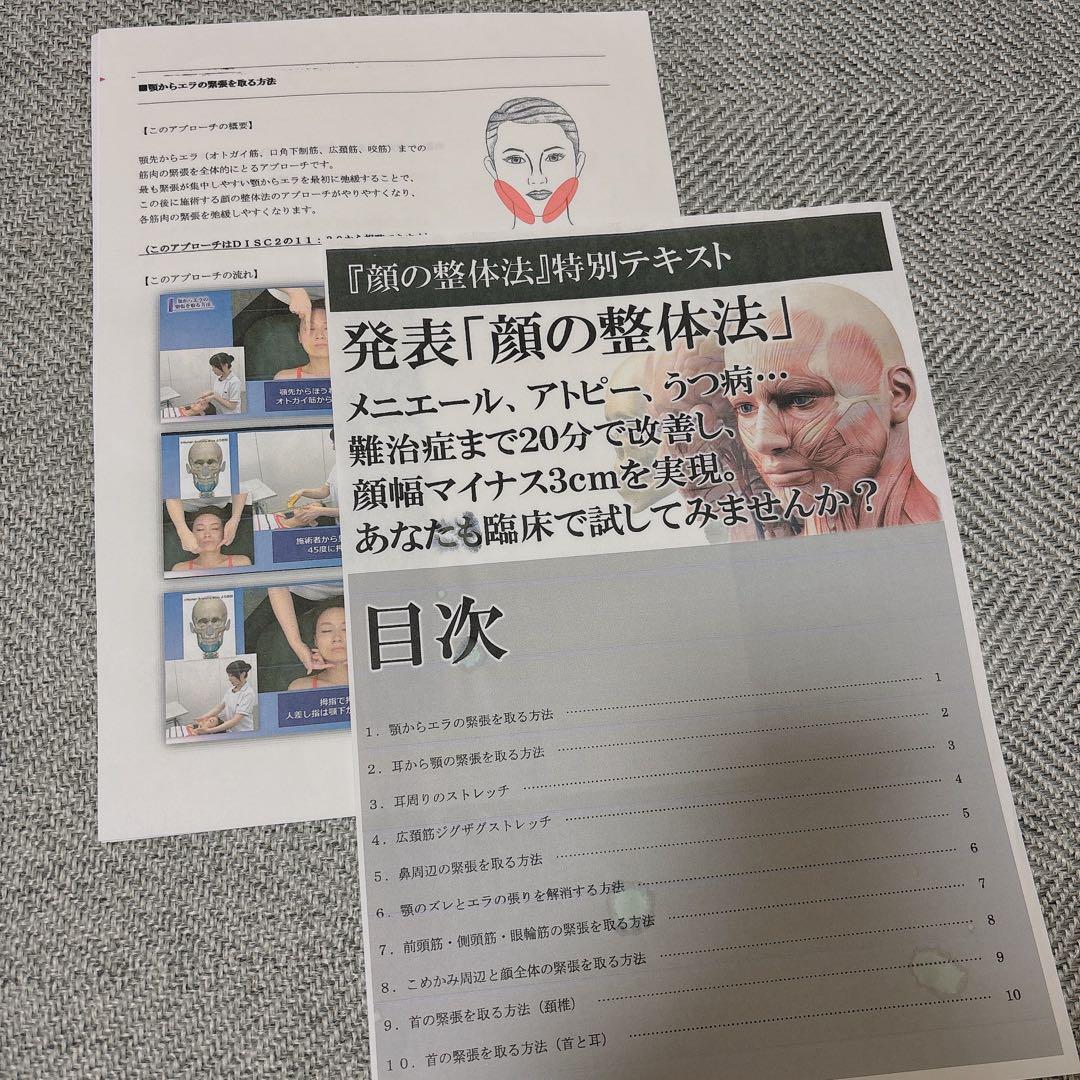 ■顎からエラの緊張を取る方法
【このアプローチの概要】
顎先からエラ（オトガイ筋、口角下制筋、広頚筋、咬筋）までの
筋肉の緊張を全体的にとるアプローチです。
最も緊張が集中しやすい顎からエラを最初に弛緩することで、
この後に施術する顔の整体法のアプローチがやりやすくなり、
各筋肉の緊張を弛緩しやすくなります。
（このアプローチはＤＩＳＣ２の１１：
【このアプローチの流れ】
顎からエラの
緊張を取る方法
顎先からほうれ
オトガイ筋から
施術者から見
45度に押
拇指で押
人差し指は顎下か
『顔の整体法』特別テキスト
発表「顔の整体法」
メニエール、アトピー、うつ病…
難治症まで20分で改善し、
顔幅マイナス3cmを実現。
あなたも臨床で試してみませんか？
目次
１．顎からエラの緊張を取る方法 1
２．耳から顎の緊張を取る方法 2
３．耳周りのストレッチ 3
４．広頚筋ジグザグストレッチ 4
５．鼻周辺の緊張を取る方法 5
６．顎のズレとエラの張りを解消する方法 6
７．前頭筋・側頭筋・眼輪筋の緊張を取る方法 7
８．こめかみ周辺と顔全体の緊張を取る方法 8
９．首の緊張を取る方法（頚椎） 9
１０．首の緊張を取る方法（首と耳） 10